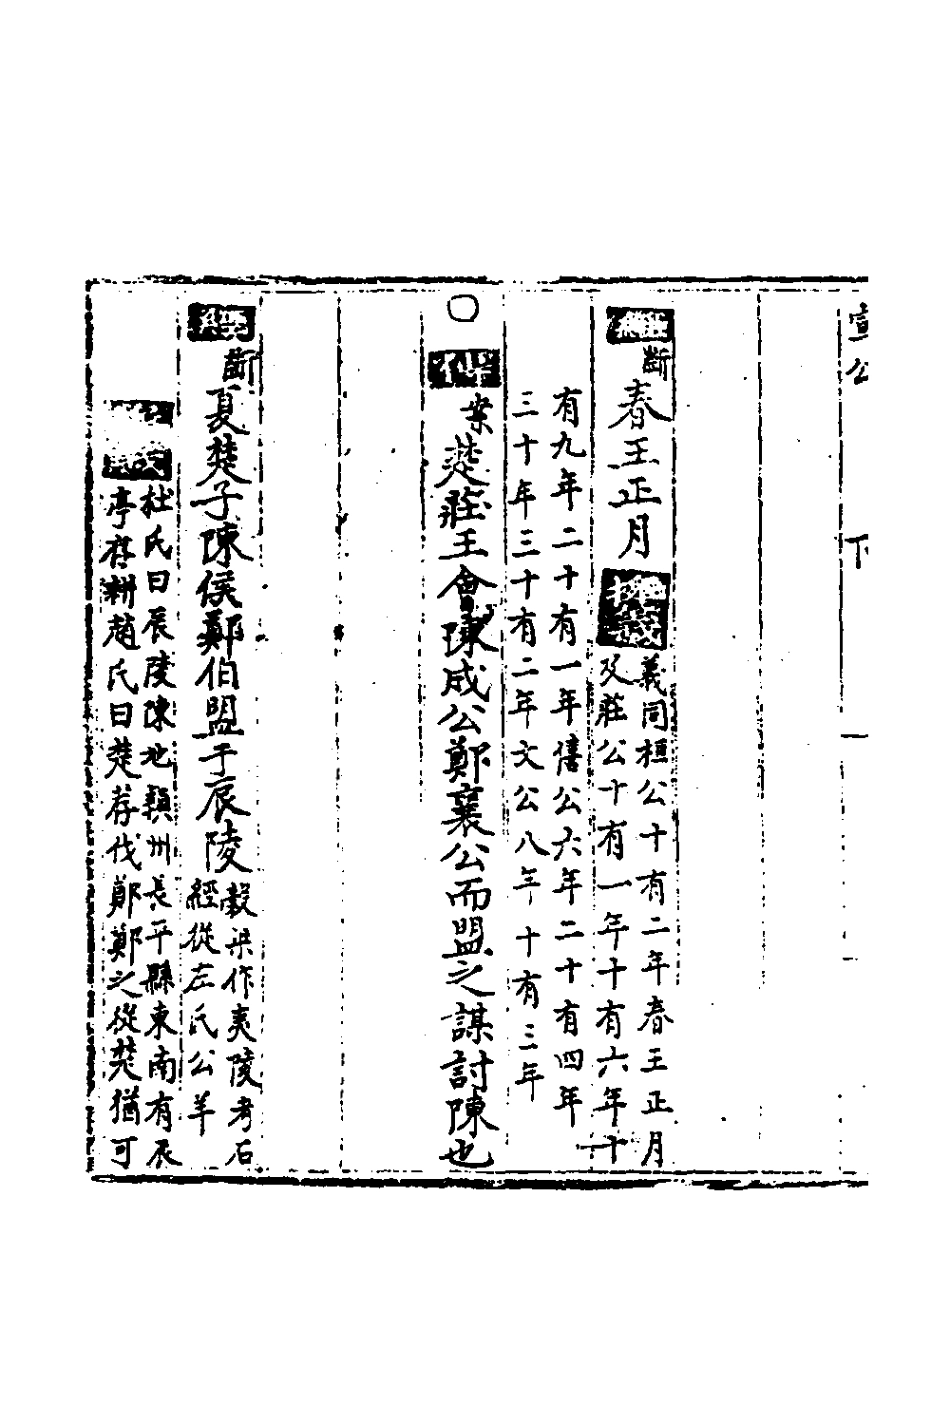 宣公 下 一
斷春王正月
義同桓公十有二年春王正月
及莊公十有一年十有六年十
有九年二十有一年僖公六年二十有四年
三十年三十有二年文公八年十有三年
案楚莊王會陳成公鄭襄公而盟之謀討陳也
斷夏楚子陳侯鄭伯盟于辰陵
穀梁作夷陵考石
經從左氏公羊
杜氏曰辰陵陳地潁州長平縣東南有辰
亭存耕趙氏曰楚荐伐鄭鄭之從楚猶可